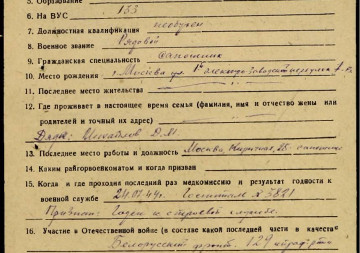 5. Образование
6. На ВУС 133
7. Должностная квалификация необучен
8. Военное звание Рядовой
9. Гражданская специальность сапожник
10. Место рождения г. Москва ул.
11. Последнее место жительства
12. Где проживает в настоящее время семья (фамилия, имя и отчество жены или
родителей и точный их адрес)
Д. М.
13. Последнее место работы и должность Москва 25
14. Каким райгорвоенкоматом и когда призван
15. Когда и где проходил последний раз медкомиссию и результат годности к
военной службе 24.07.44г. Госпиталь № 3821
Признан: Годен к строевой службе.
16. Участие в Отечественной войне (в составе какой последней части и качестве
Белорусский фронт 129